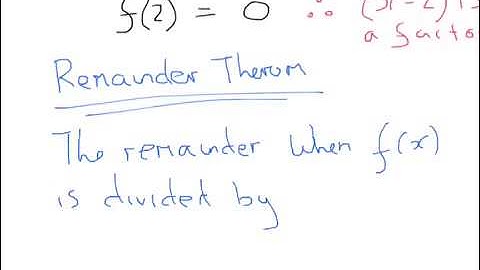 f(2) = 0 ∴ (x-2) is
a facto
Remainder Therom
The remainder when f(x)
is divided by